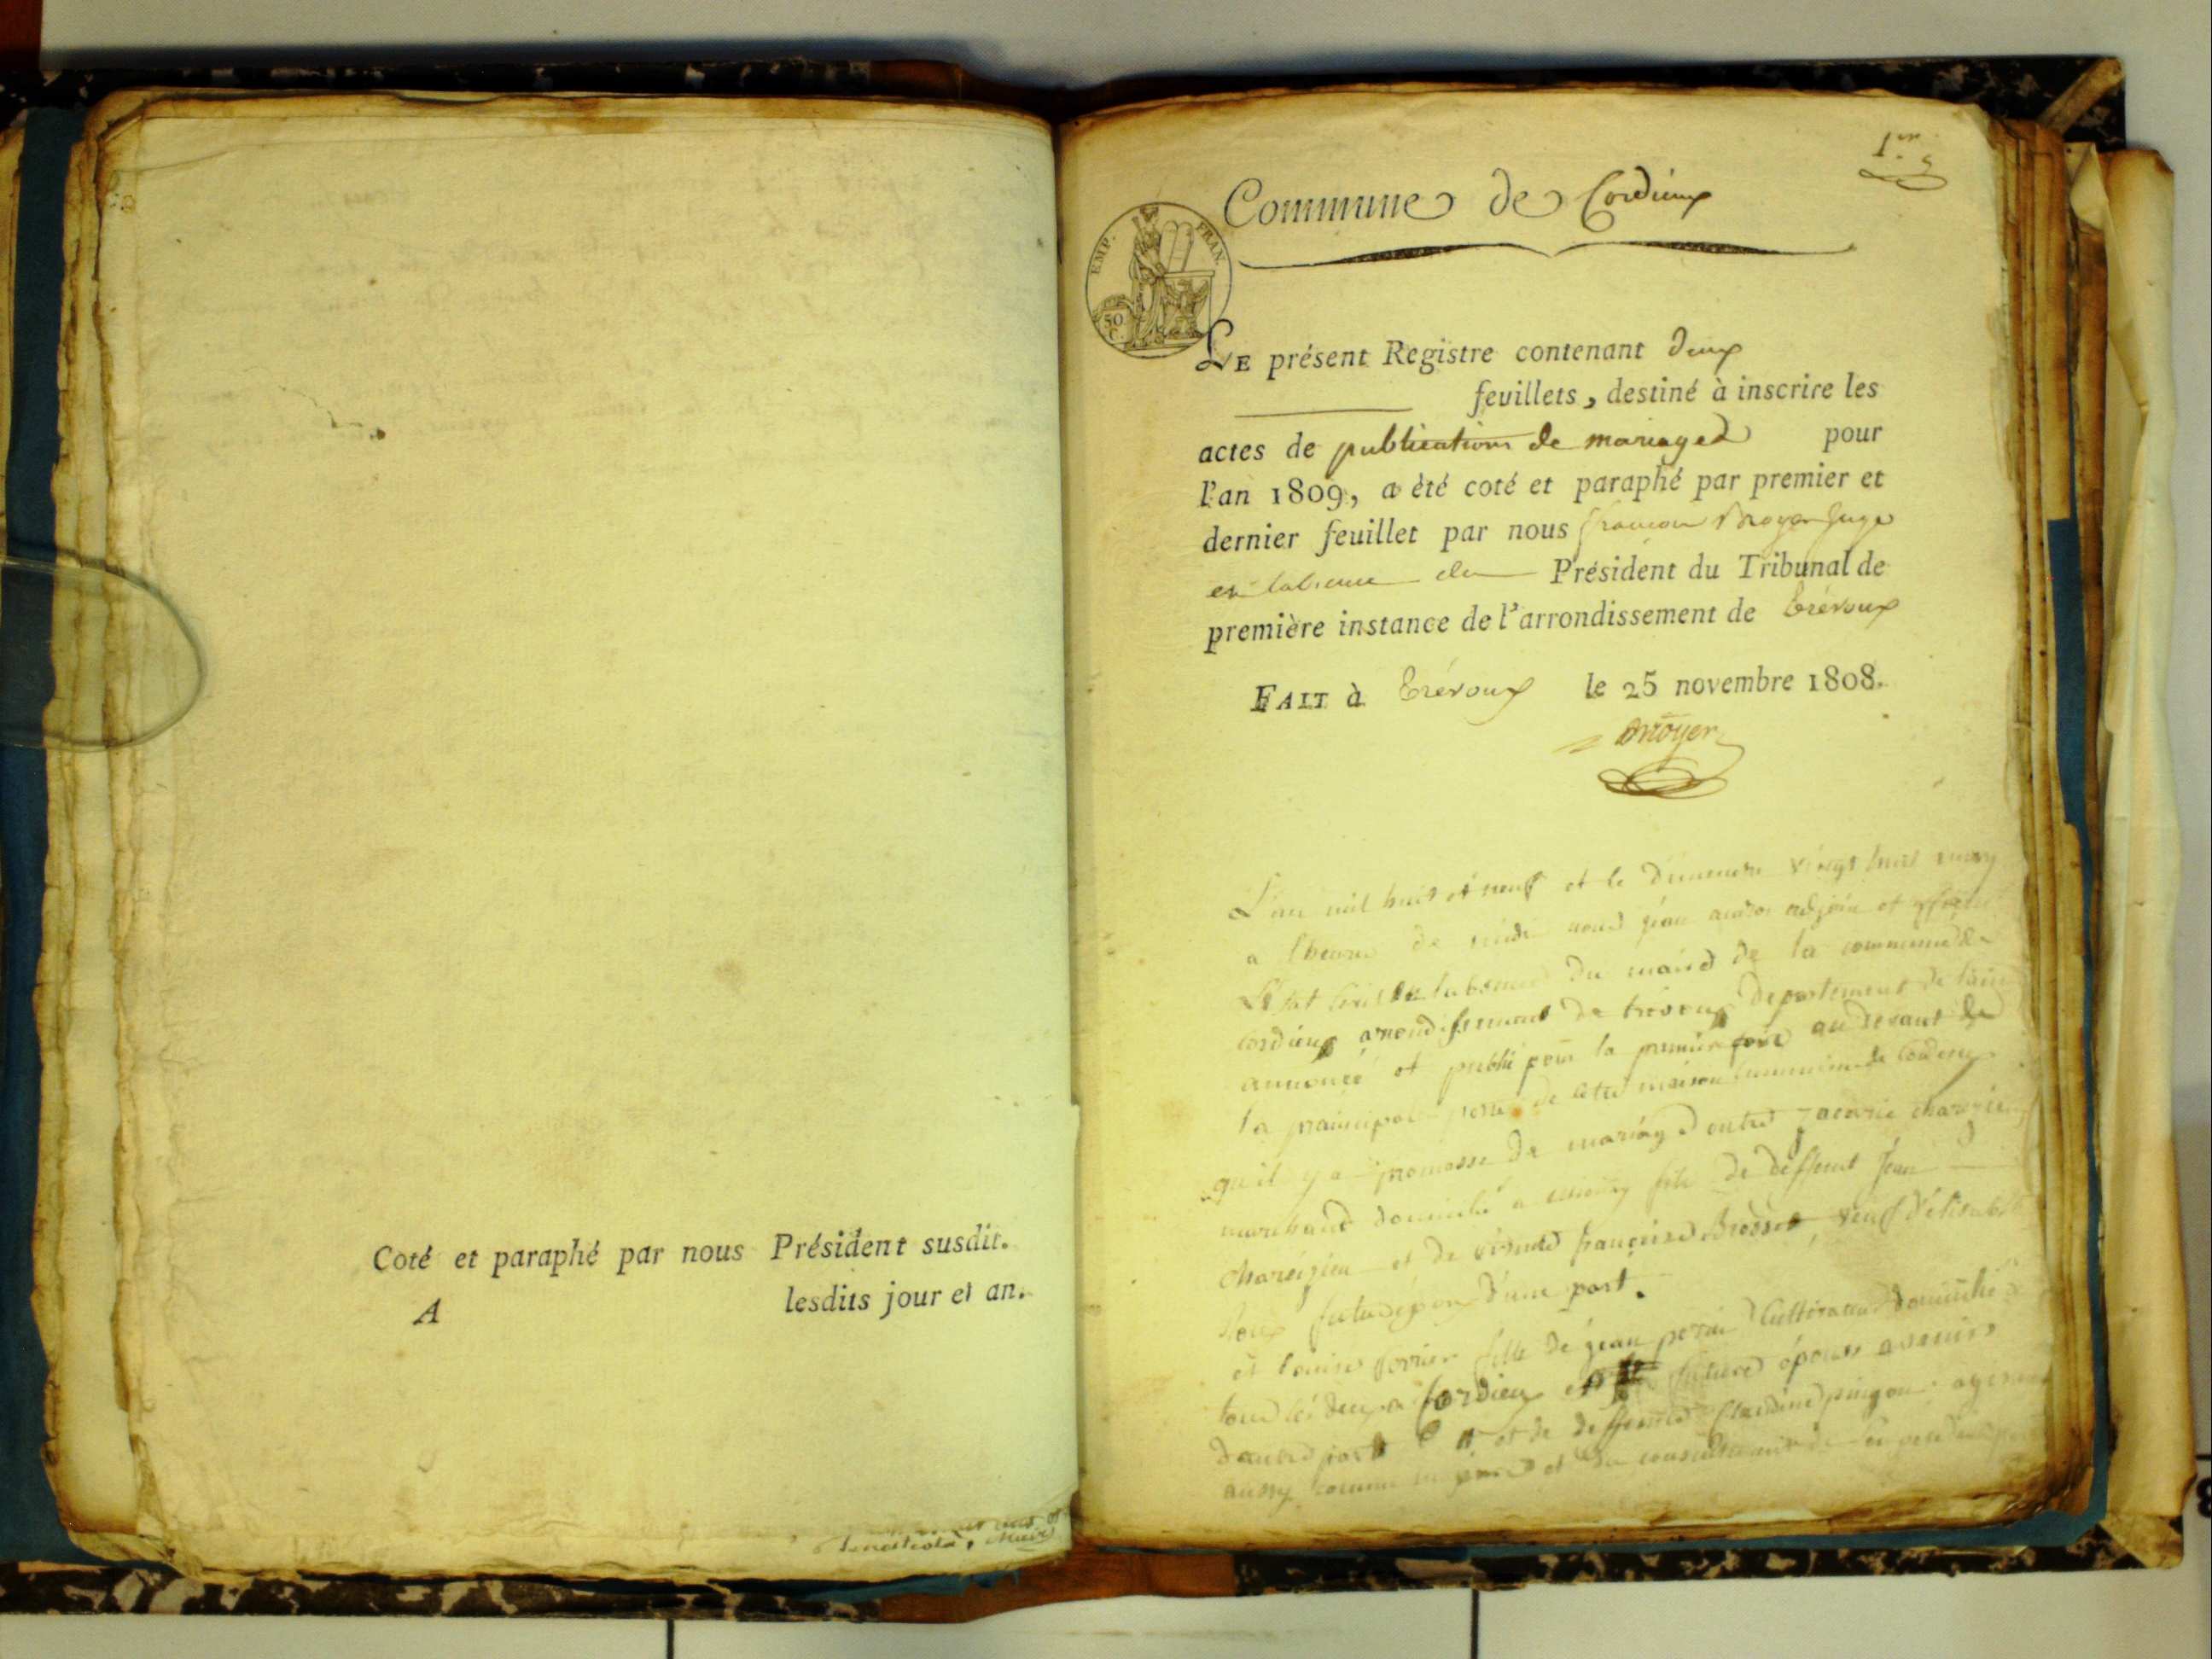 Coté et paraphé par nous Président susdit.
A lesdits jour et an.
Maire
1.er
Commune de Cordieux
EMP. FRAN.
50 C.
LE présent Registre contenant deux
feuillets, destiné à inscrire les
actes de publications de mariages pour
l'an 1809, a été coté et paraphé par premier et
dernier feuillet par nous françois Broyer Juge
en labsence du Président du Tribunal de
première instance de l'arrondissement de trévoux
FAIT à trévoux le 25 novembre 1808.
Broyer
L'an mil huit et neuf et le dimenche vingt huit may
a lheure de midi nous jean adjoin et
L'Etat Civil en labsence du maire de la commune de
Cordieux arrondissement de trévoux departement de lain
annoncé et publié pour la premiere fois au devant de
la prainsipal porte de maison commune de Cordieux
qu'il y a promesse de mariage entre
marchand domicilié a fils de deffunt Jean
et de vivante françoise veuf d'elisabet
futur epoux d'une part.
et louise fille de jean Cultivateur domicilié
tous les deux a Cordieux future épouse avenir
dautre part et de deffunte Claudine
aussy comme et du consentement de son pere